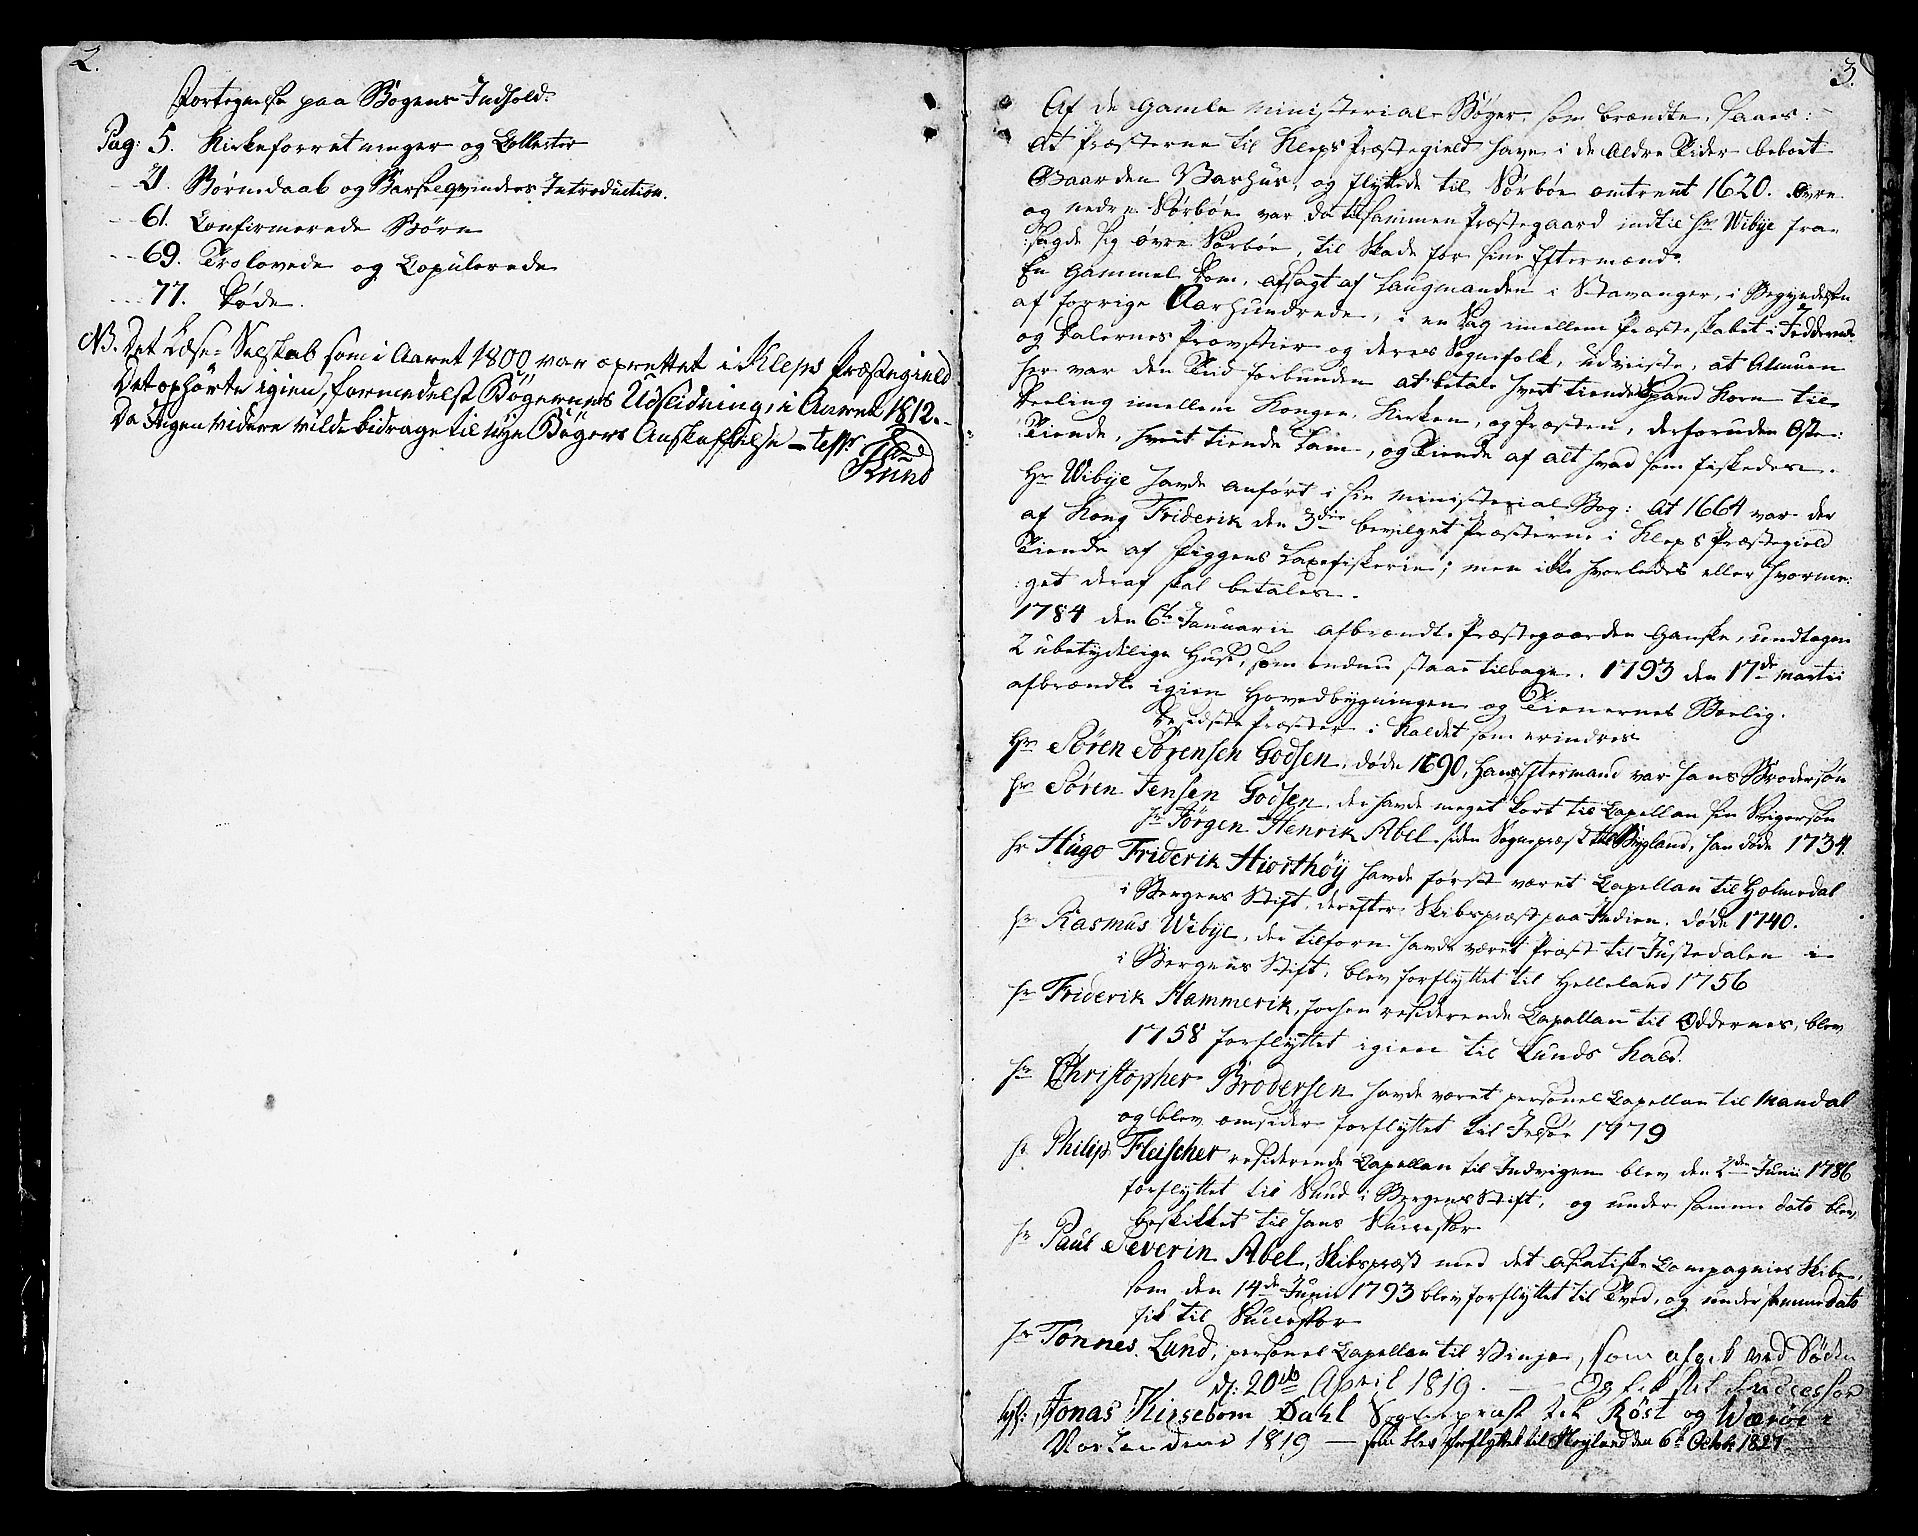 2.
Fortegnelse paa Bogens Indhold.
Pag: 5. Kirkeforretninger og Collecter
21. Børnedaab og Barselqvinders Introduction.
61. Confirmerede Børn
69. Trolovede og Copulerede
77. Døde.
NB. Det Læse-Selskab som i Aaret 1800 var oprettet i Kleps Præstegield
Det ophørte igien, formedelst Bøgernes Udslidning, i Aaret 1812.
Da Ingen videre vilde bidrage til nye Bøgers Anskaffelse – test.
Lund
3.
Af de gamle Ministerial-Bøger som brændte, saaes:
At Præsterne til Kleps Præstegield have i de Ældre Tider beboet
Gaarden Vashus, og flyttede til Sørbøe omtrent 1620. Øvre
og nedre Sørbøe var da tilsammen Præstegaard indtil Hr Wibye fra-
:sagde sig øvre Sørbøe, til Skade for sine Eftermænd.
En gammel Dom, afsagt af Laugmanden i Stavanger, i Begyndelsen
af forrige Aarhundrede, i en Sag imellem Præsteskabet i Jedderens
og Dalernes Provstier og deres Sognefolk, udviiste, at Almuen
her var den Tiid forbunden at betale hvert tiende Spand Korn til
Deeling imellem Kongen, Kirken, og Præsten, derforuden Oste:
Tiende, hvert tiende Lam, og Tiende af alt hvad som fiskedes.
Hr Wibye havde anført i sin Ministerial Bog: At 1664 var der
af Kong Friderik den 3die bevilget Præsterne i Kleps Præstegield
Tiende af Figgens Laxefiskerie; men ikke hvorledes eller hvorme:
:get deraf skal betales.
1784 den 6te Januarii afbrændte Præstegaarden ganske, undtagen
2 ubetydelige Huse, som endnu staae tilbage. 1793 den 17de Martii
afbrændte igien Hovedbygningen og Tienernes Boelig.
De sidste Præster i Kaldet som erindres
Hr Søren Sørensen Godsen, døde 1690, hans Eftermand var hans Brodersøn
Hr Søren Jensen Godsen, der havde meget kort til Capellan sin Svigersøn
Hr Jørgen Henrik Abel, siden Sognepræst til Bygland, han døde 1734.
Hr Hugo Friderik Hiorthøy havde først været Capellan til Holmedal
i Bergens Stift, derefter Skibspræst paa Indien. døde 1740.
Hr Rasmus Wibye, der tilforn havde været Præst til Justedalen i
i Bergens Stift, blev forflyttet til Helleland 1756
Hr Friderik Hammerik, forhen residerende Capellan til Oddernes, blev
1758 forflyttet igien til Lunds Kald.
Hr Christopher Brodersen havde været personel Capellan til Mandal
og blev omsider forflyttet til 1779
Hr Philip Fleischer residerende Capellan til Indvigen blev den 2den Junii 1786
forflyttet til Sund i Bergens Stift, og under samme dato blev
beskikket til hans Successor
Hr Paul Severin Abel, Skibspræst med det asiatiske Compagnies Skibe,
som den 14de Junii 1793 blev forflyttet til Tved, og under samme dato
fik til Successor
Hr Tønnes Lund, personel Capellan til Vinje, som afgik ved Døden
d: 20de April 1819. – Og fik til Successor
Jonas Kirsebom Dahl Sognepræst til Røst og Wærøe i
Nordlandene 1819 – som blev forflyttet til Høyland den 6te Octbr 1827